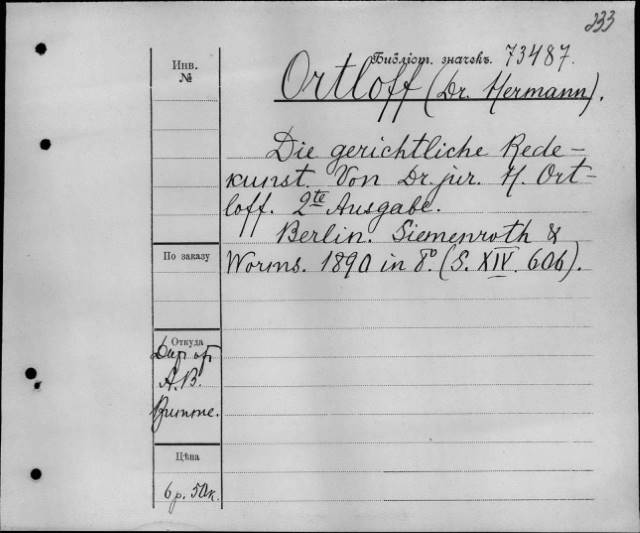 233
Инв.
№
Библіот. значекъ. 73487.
Ortloff (Dr. Hermann).
Die gerichtliche Rede-
kunst. Von Dr. jur. H. Ort-
loff. 2te Ausgabe.
Berlin. Siemenroth &
Worms. 1890 in 8°. (S. XIV. 606).
По заказу
Откуда
А.В.
Цѣна
6 р. 50 к.